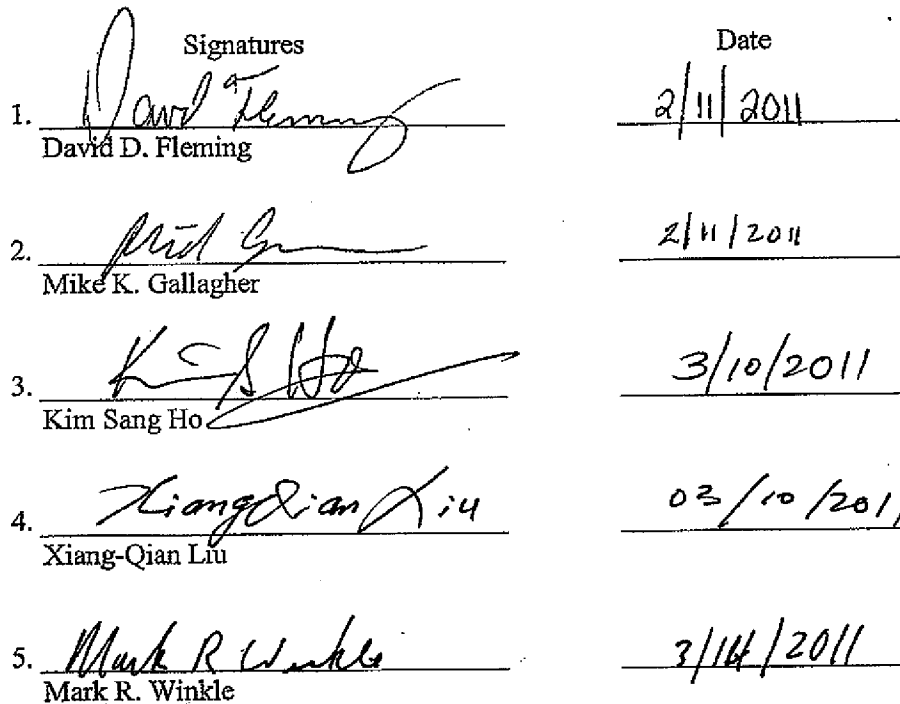 Signatures Date
1. David Fleming 2/11/2011
David D. Fleming
2. 2/11/2011
Mike K. Gallagher
3. Kim S Ho 3/10/2011
Kim Sang Ho
4. XiangQian Liu 03/10/2011
Xiang-Qian Liu
5. Mark R Winkle 3/14/2011
Mark R. Winkle